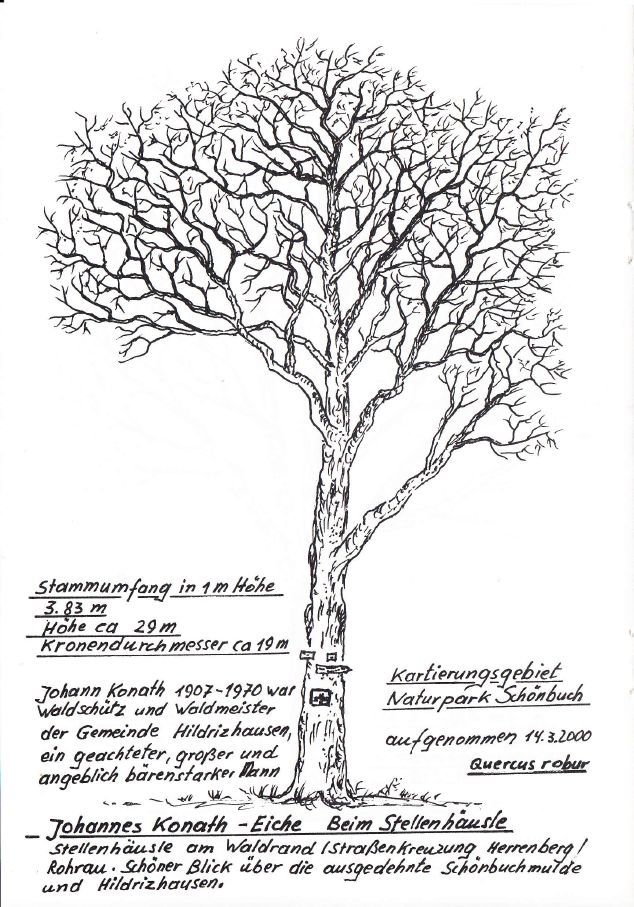 Stammumfang in 1 m Höhe
3.83 m
Höhe ca 29 m
Kronendurchmesser ca 19 m
Johann Konath 1907-1970 war
Waldschütz und Waldmeister
der Gemeinde Hildrizhausen,
ein geachteter, großer und
angeblich bärenstarker Mann
Kartierungsgebiet
Naturpark Schönbuch
aufgenommen 14.3.2000
Quercus robur
Johannes Konath - Eiche Beim Stellenhäusle
Stellenhäusle am Waldrand / Straßenkreuzung Herrenberg /
Rohrau. Schöner Blick über die ausgedehnte Schönbuchmulde
und Hildrizhausen.